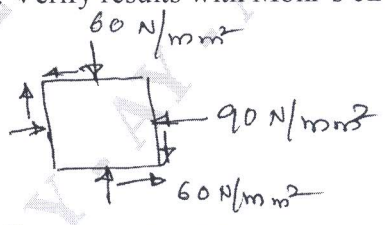 Verify results with Mohr's
60 N/mm²
90 N/mm²
60 N/mm²